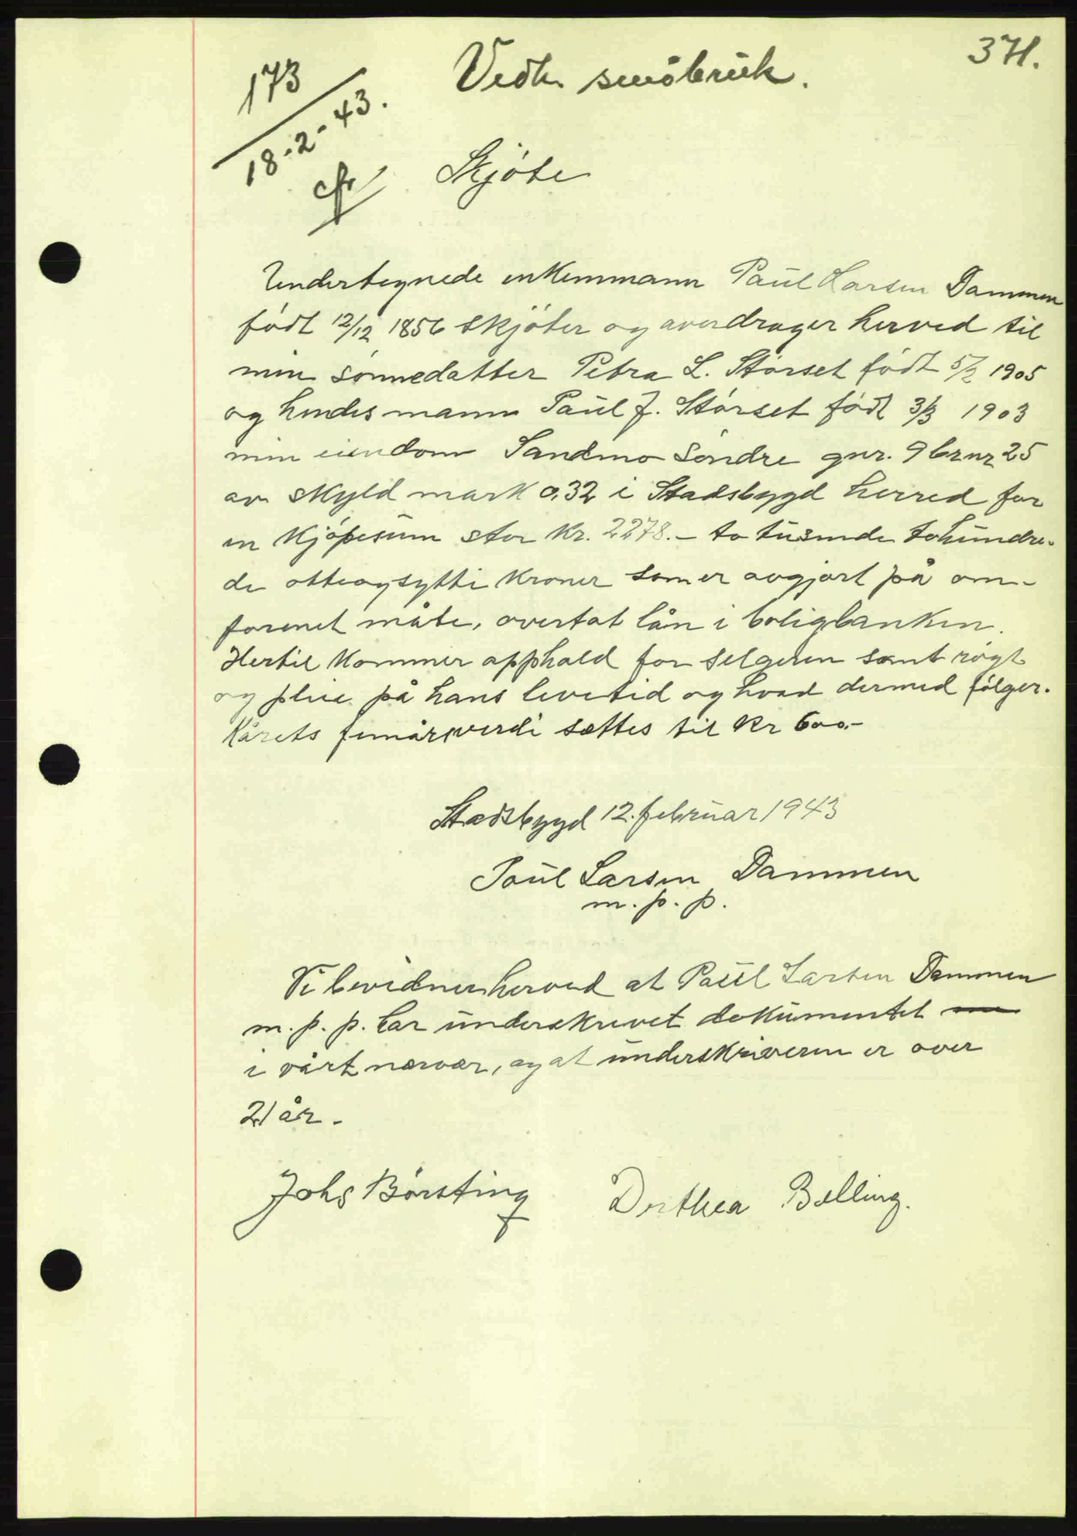 371.
173
18-2-43.
cfr
Vedk. småbruk.
Skjöte
Undertegnede enkemmann Paul Larsen Dammen
födt 12/12 1856 skjöter og averdrager herved til
min sönnedatter Petra L. Störset födt 5/2 1905
og hendes mann Paul J. Störset födt 3/3 1903
min eiendom Sandmo Söndre gnr. 9 brnr 25
av skyld mark 0,32 i Stadsbygd herred for
en kjöpesum stor kr. 2278.- to tusende tohundre-
de otteogsytti kroner som er avgjort på om-
forenet måte, overtat lån i boligbanken.
Hertil kommer opphold for selgeren samt rögt
og pleie på hans levetid og hvad dermed fölger.
Kårets femårsverdi sættes til kr 600.-
Stadsbygd 12. februar 1943
Paul Larsen Dammen
m. p. p.
Vi bevidner herved at Paul Larsen Dammen
m. p. p. har underskrevet dokumentet
i vårt nærvær, og at underskriveren er over
21 år.
Johs Börsting
Dorthea Belling.